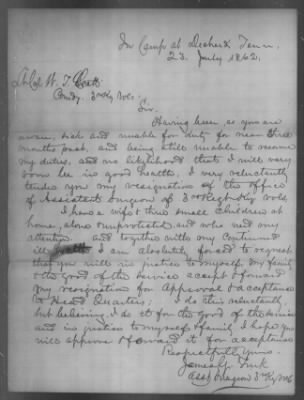 In Camp at Decherd Tenn.
23. July 1862.
Lt Col W. T. Scott
Comdg. 3rd Ky Vols.
Sir.
Having been, as you are
aware, sick and unable for duty for near three
months past, and being still unable to resume
my duties, and no liklihood that I will very
soon be in good health, I very reluctantly
tender you my resignation of the office
of Assistant Surgeon of 3rd Regt Ky vols.
I have a wife & three small children at
home, alone & unprotected, and who need my
attention and together with my continued
ill health I am absolutely forced to request
that you will in justice to myself & my family
& the good of the service accept & forward
my resignation for Approval & acceptance
to Head Quarters; I do this reluctantly,
but believing I do it for the good of the service
and in justice to myself & family, I hope you
will approve & forward it for acceptance
Respectfully yours.
James
Asst Surgeon 3rd Ky Vols